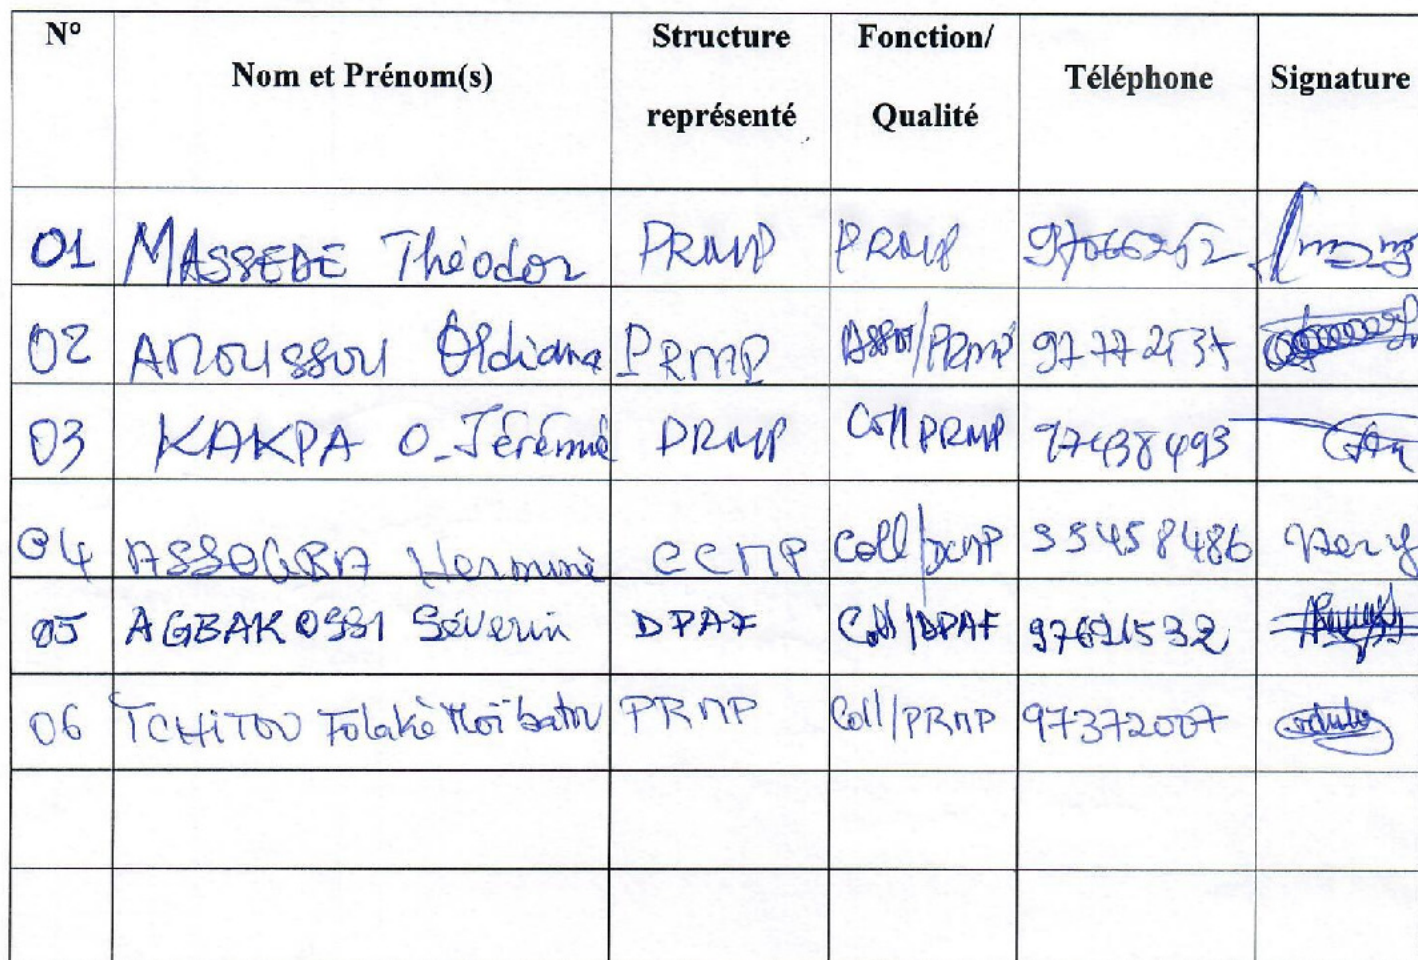 N° Nom et Prénom(s) Structure représenté Fonction/ Qualité Téléphone Signature
01 MASSEDE Théodor PRMP PRMP 97066252
02 AMOUSSOU Oldiana PRMP Asst/PRMP 97772537
03 KAKPA O. Jérémie PRMP Coll PRMP 97438493
04 ASSOGBA Hermine CCMP Coll/ 95458486
05 AGBAKOSSI Séverin DPAF Coll/DPAF 97691532
06 TCHITOU Folakè Moïbatou PRMP Coll/PRMP 97372007